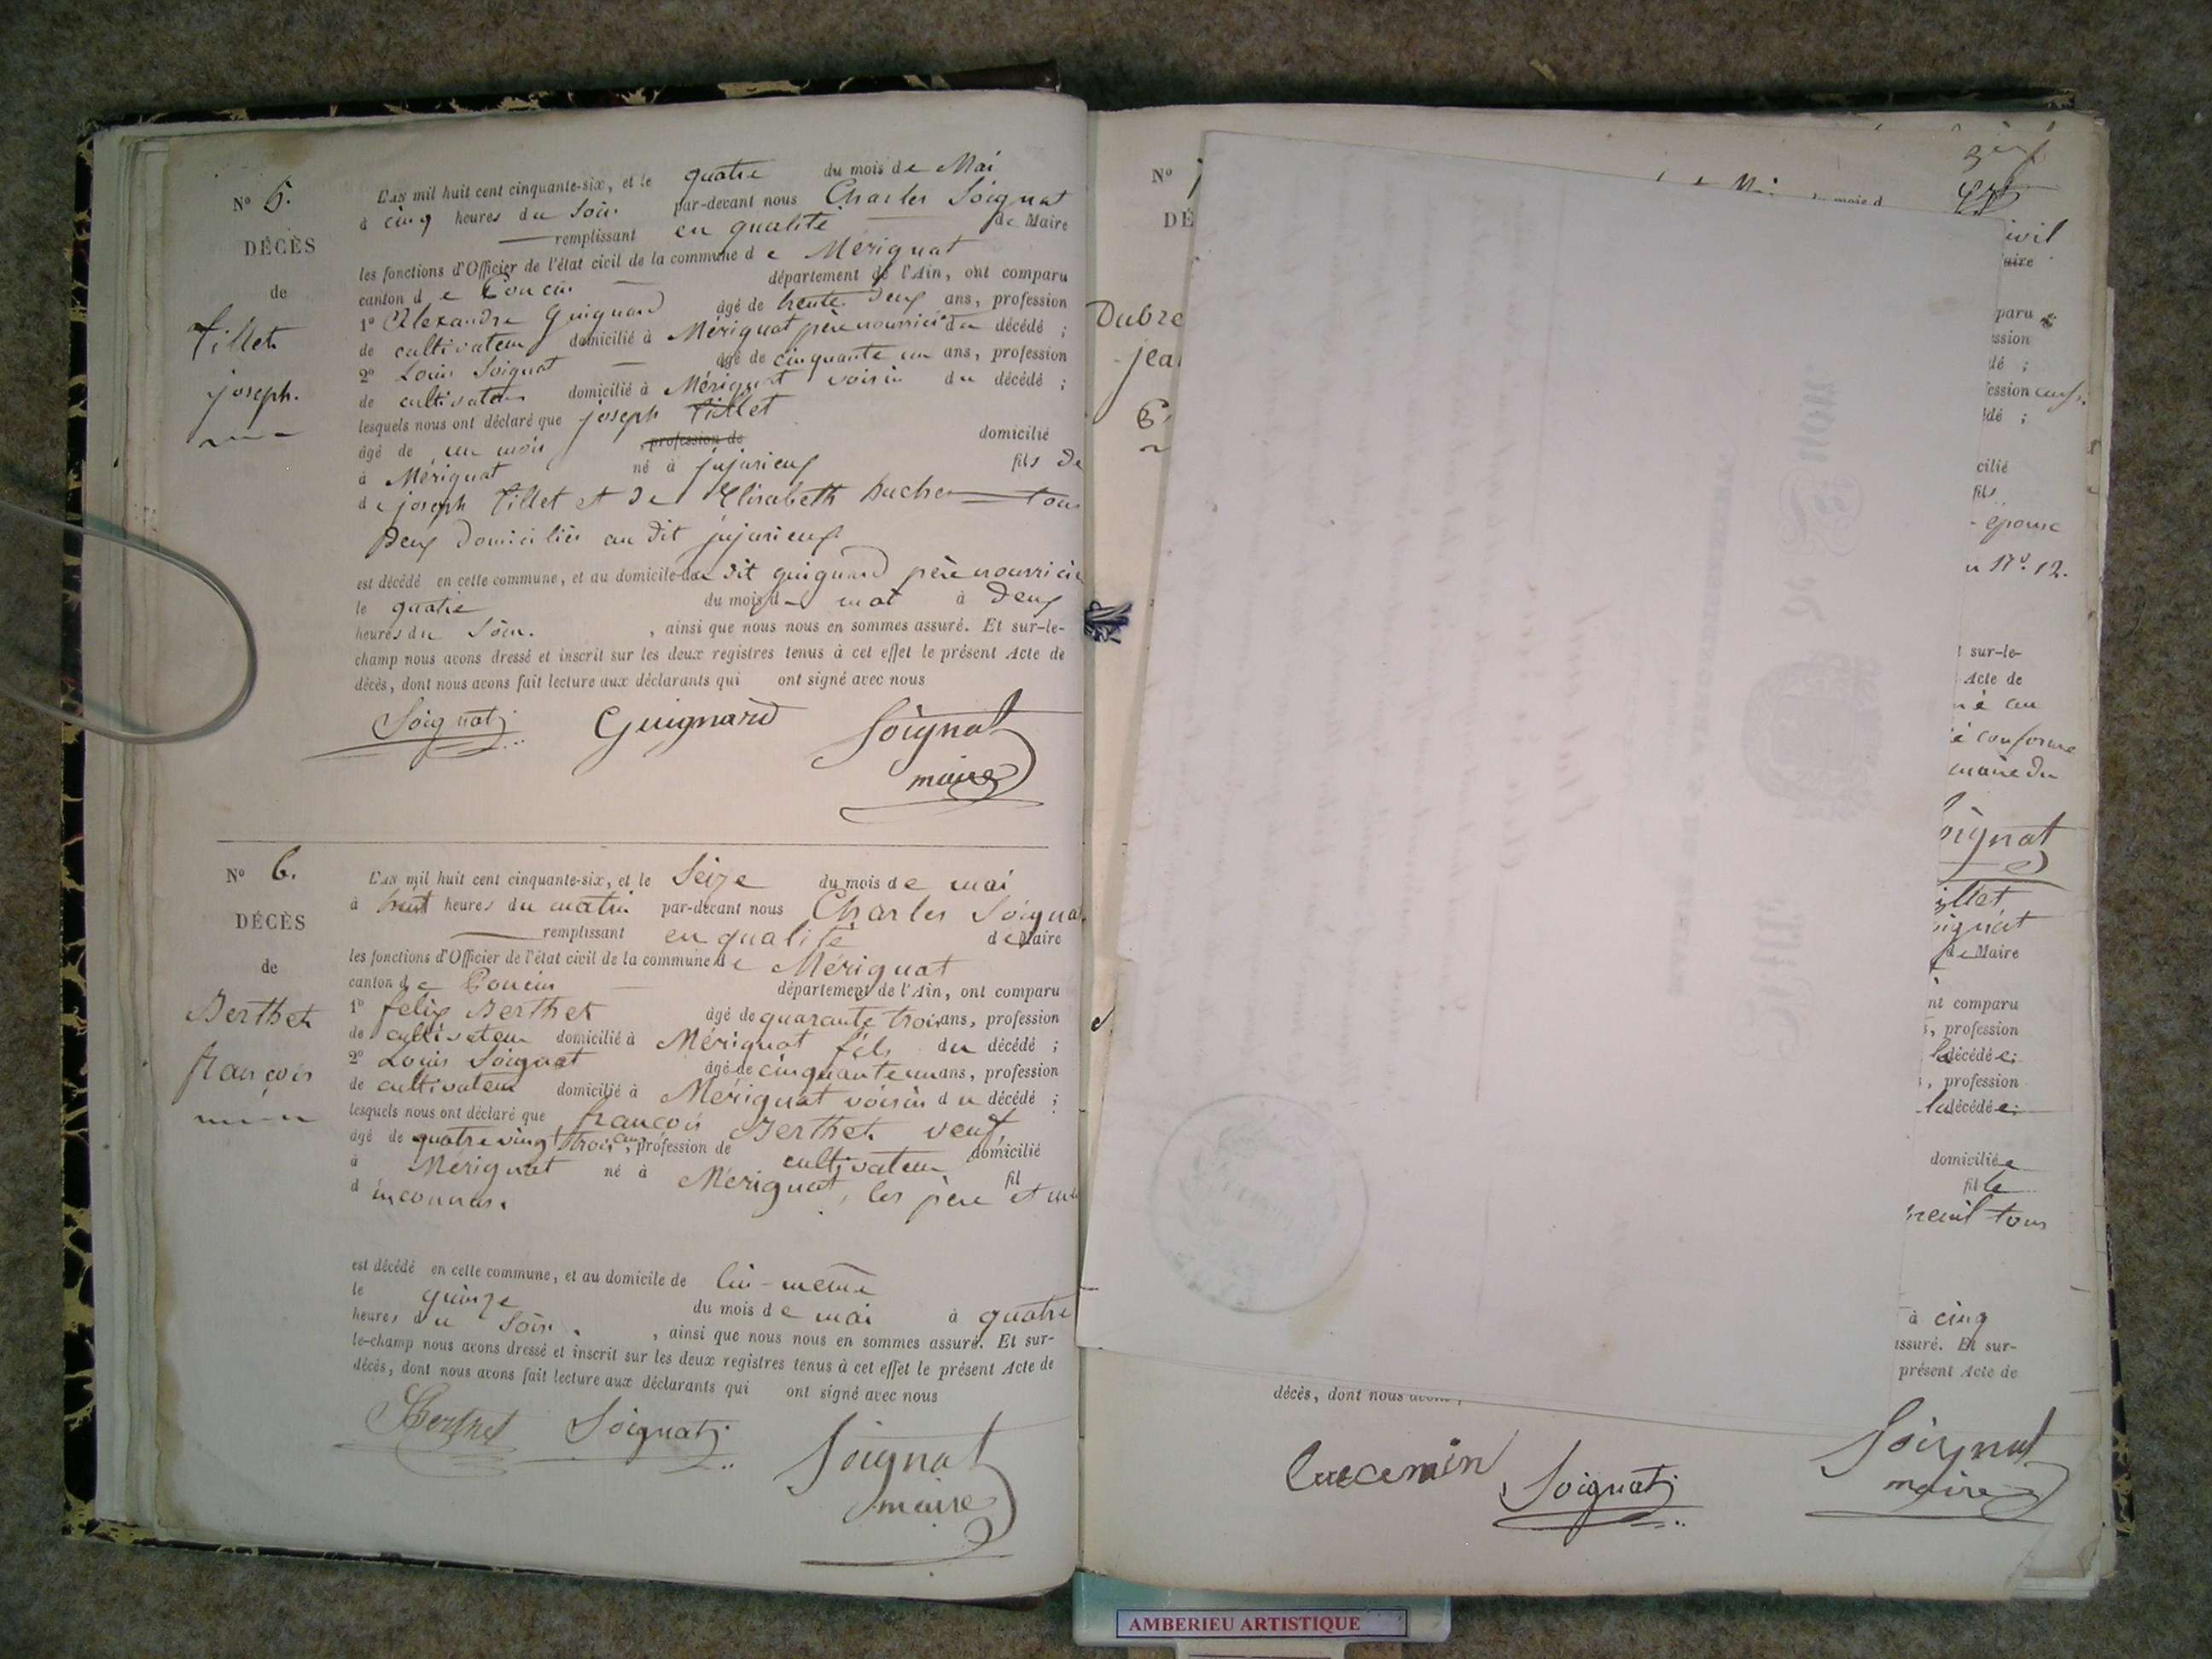 N° 5.
DÉCÈS
de
Tillet
joseph.
L'AN mil huit cent cinquante-six, et le quatre du mois de Mai
à cinq heures du soir par-devant nous Charles Soignat
remplissant en qualité de Maire
les fonctions d'Officier de l'état civil de la commune de Mérignat
canton de Poncin département de l'Ain, ont comparu
1° Alexandre Guignard âgé de trente deux ans, profession
de cultivateur domicilié à Mérignat père nourricier du décédé ;
2° Louis Soignat âgé de cinquante un ans, profession
de cultivateur domicilié à Mérignat voisin du décédé ;
lesquels nous ont déclaré que joseph Tillet
âgé de un mois profession de domicilié
à Mérignat né à jujurieux fils de
de joseph Tillet et de Elisabeth tous
Deux Domiciliés au dit jujurieux
est décédé en cette commune, et au domicile du dit guignard père nourricier
le quatre du mois de mai à Deux
heures du Soir. , ainsi que nous nous en sommes assuré. Et sur-le-
champ nous avons dressé et inscrit sur les deux registres tenus à cet effet le présent Acte de
décès, dont nous avons fait lecture aux déclarants qui ont signé avec nous
Soignat Guignard Soignat
maire
N° 6.
DÉCÈS
de
Berthet
françois
L'AN mil huit cent cinquante-six, et le Seize du mois de mai
à huit heures du matin par-devant nous Charles Soignat
remplissant en qualité de Maire
les fonctions d'Officier de l'état civil de la commune de Mérignat
canton de Poncin département de l'Ain, ont comparu
1° felix Berthet âgé de quarante trois ans, profession
de cultivateur domicilié à Mérignat fils du décédé ;
2° Louis Soignat âgé de cinquante un ans, profession
de cultivateur domicilié à Mérignat voisin du décédé ;
lesquels nous ont déclaré que françois Berthet veuf
âgé de quatre vingt trois ans, profession de cultivateur domicilié
à Mérignat né à Mérignat, fil
d les père et
inconnus.
est décédé en cette commune, et au domicile de lui-même
le quinze du mois de mai à quatre
heures du Soir. , ainsi que nous nous en sommes assuré. Et sur-
le-champ nous avons dressé et inscrit sur les deux registres tenus à cet effet le présent Acte de
décès, dont nous avons fait lecture aux déclarants qui ont signé avec nous
Berthet Soignat Soignat
maire
N°
DÉ
Dubre
jea
du mois d
ivil
aire
paru
ssion
dé ;
fession
dé ;
cilié
fils
épouse
N°. 12.
sur-le-
Acte de
é au
é conforme
maire du
oignat
illet
oignat
de Maire
nt comparu
s, profession
la décédée;
s, profession
la décédée;
domiciliée
fille
reuil tous
à cinq
assuré. Et sur-
présent Acte de
décès, dont nous avons
Soignat Soignat
maire
AMBERIEU ARTISTIQUE